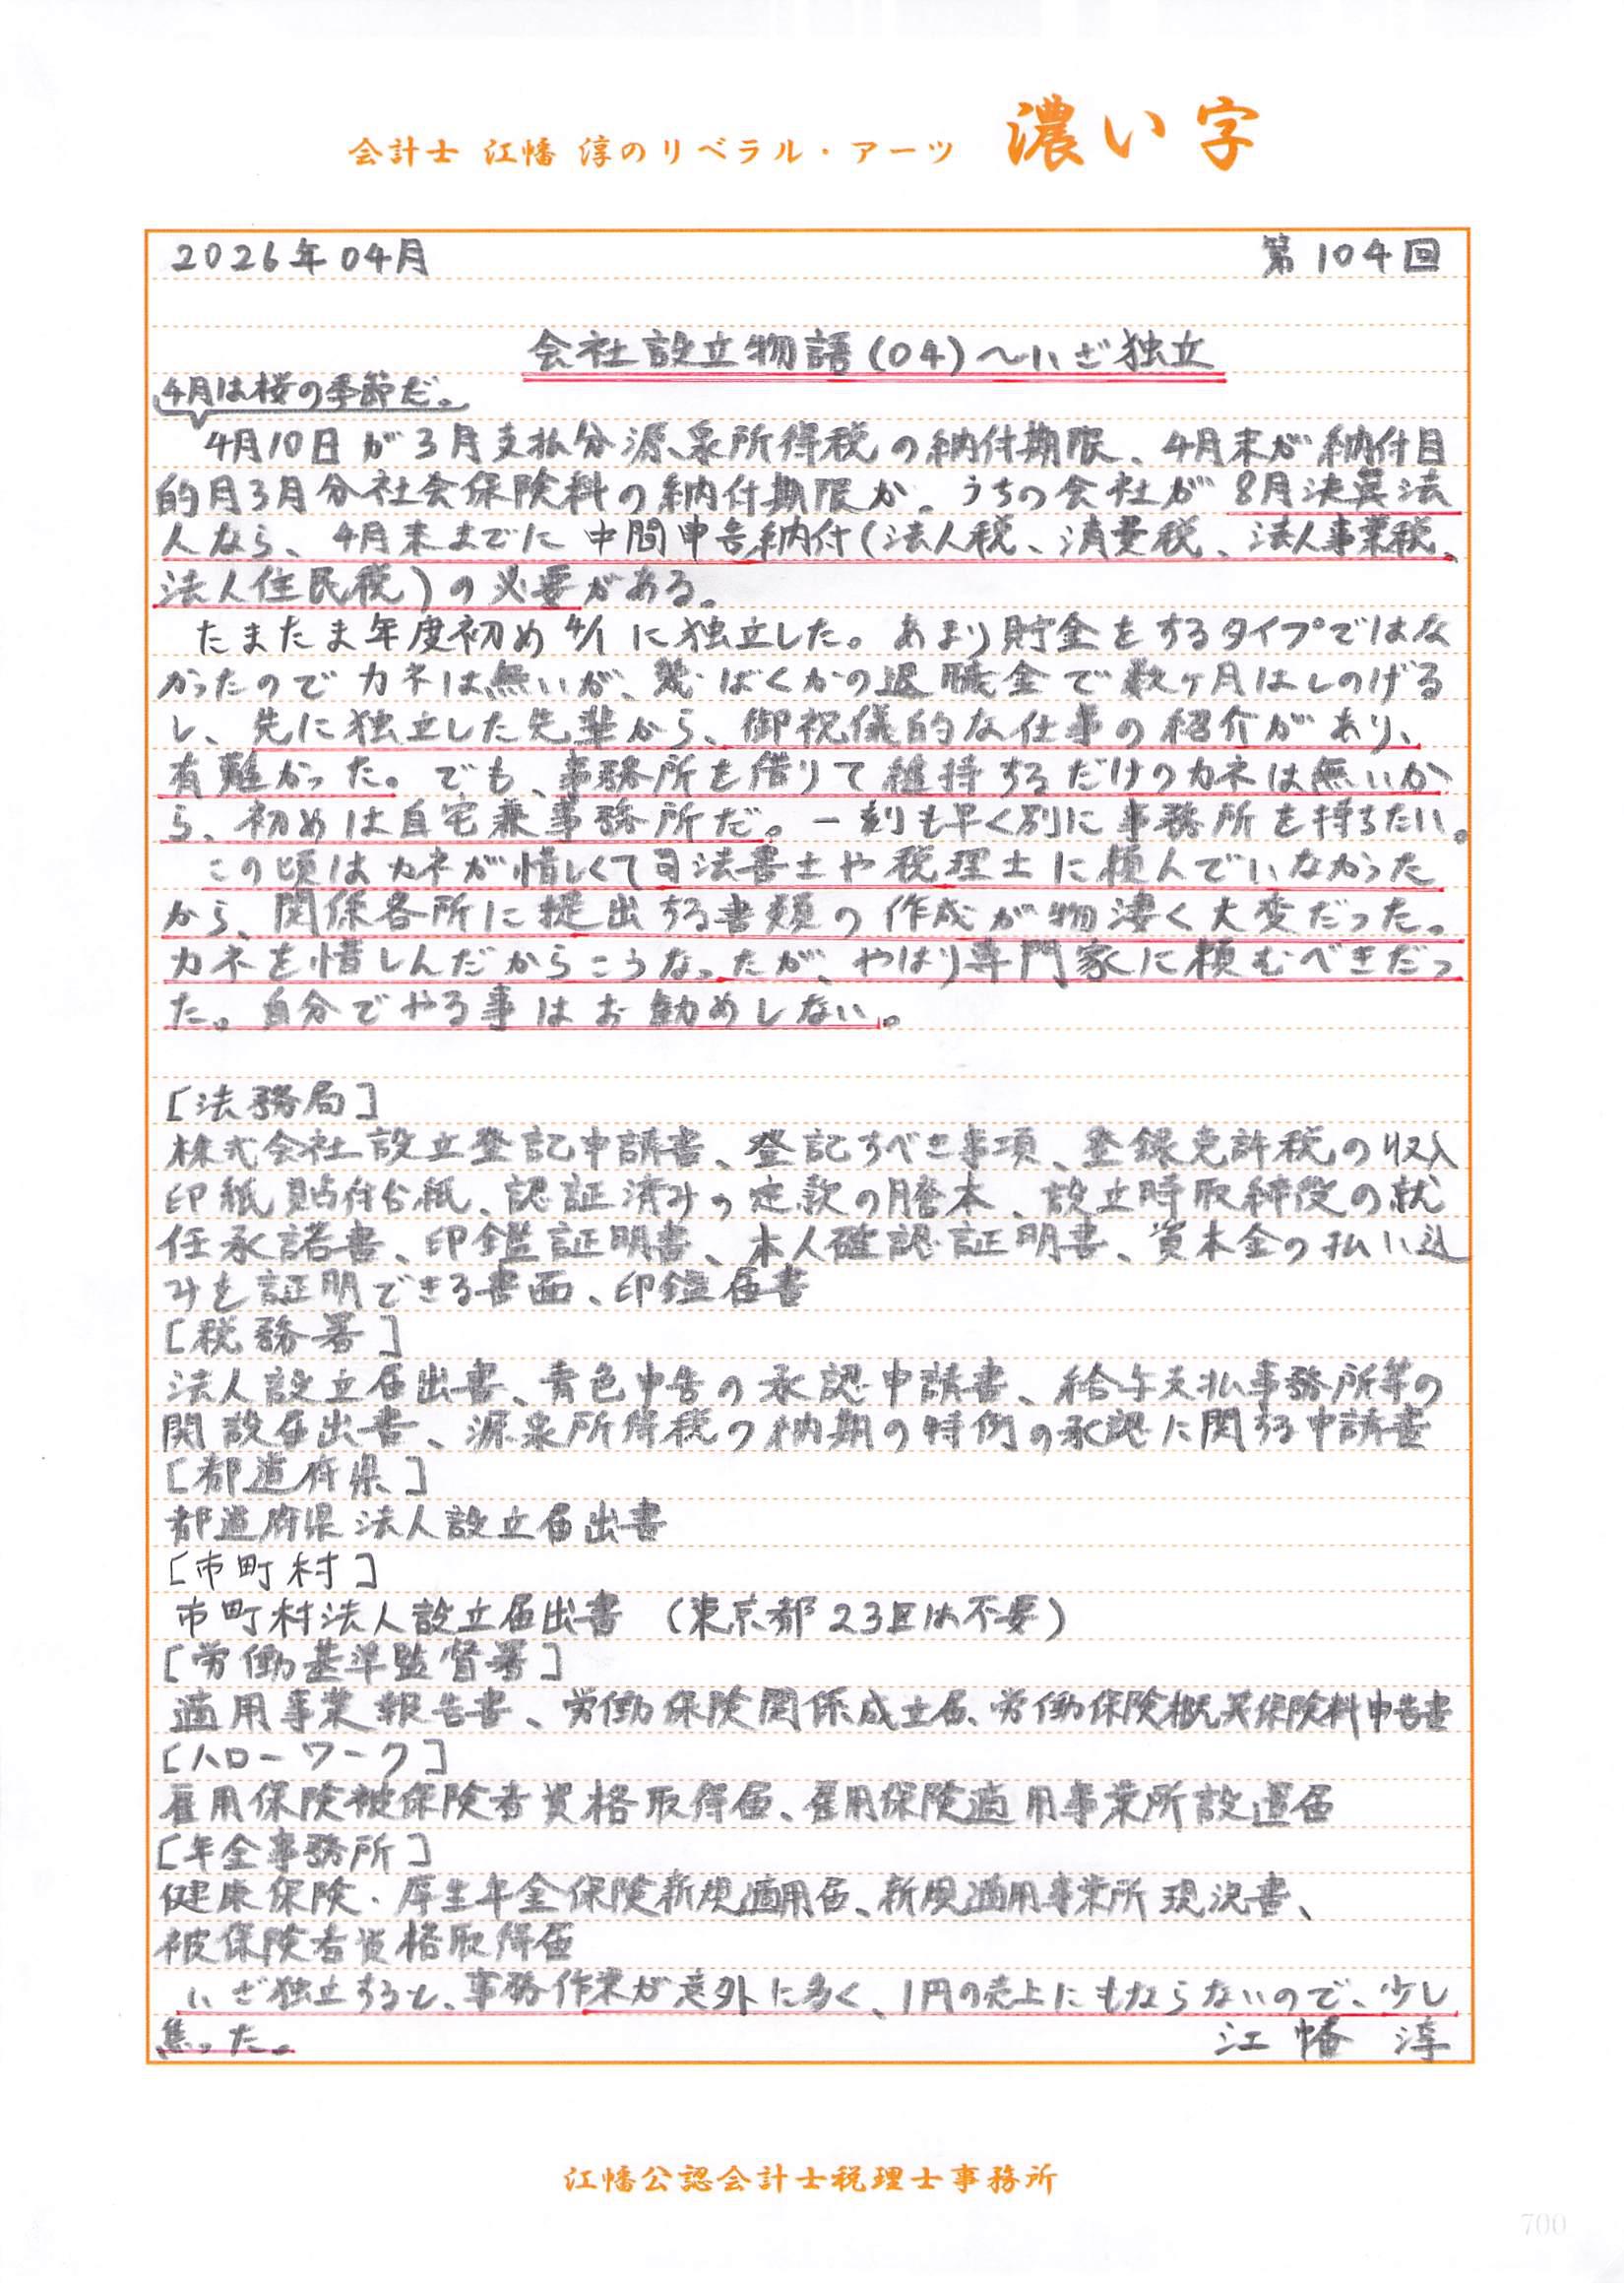 会計士 江幡 淳のリベラル・アーツ 濃い字
2026年04月 第104回
会社設立物語(04)〜いざ独立
4月は桜の季節だ。
4月10日が3月支払分源泉所得税の納付期限、4月末が納付目
的月3月分社会保険料の納付期限か。うちの会社が8月決算法
人なら、4月末までに中間申告納付(法人税、消費税、法人事業税、
法人住民税)の必要がある。
たまたま年度初め4/1に独立した。あまり貯金をするタイプではな
かったのでカネは無いが、幾ばくかの退職金で数ヶ月はしのげる
し、先に独立した先輩から、御祝儀的な仕事の紹介があり、
有難かった。でも、事務所を借りて維持するだけのカネは無いか
ら、初めは自宅兼事務所だ。一刻も早く別に事務所を持ちたい。
この頃はカネが惜しくて司法書士や税理士に頼んでいなかった
から、関係各所に提出する書類の作成が物凄く大変だった。
カネを惜しんだからこうなったが、やはり専門家に頼むべきだっ
た。自分でやる事はお勧めしない。
[法務局]
株式会社設立登記申請書、登記すべき事項、登録免許税の収入
印紙貼付台紙、認証済みの定款の謄本、設立時取締役の就
任承諾書、印鑑証明書、本人確認証明書、資本金の払い込
みを証明できる書面、印鑑届書
[税務署]
法人設立届出書、青色申告の承認申請書、給与支払事務所等の
開設届出書、源泉所得税の納期の特例の承認に関する申請書
[都道府県]
都道府県法人設立届出書
[市町村]
市町村法人設立届出書 (東京都23区は不要)
[労働基準監督署]
適用事業報告書、労働保険関係成立届、労働保険概算保険料申告書
[ハローワーク]
雇用保険被保険者資格取得届、雇用保険適用事業所設置届
[年金事務所]
健康保険・厚生年金保険新規適用届、新規適用事業所現況書、
被保険者資格取得届
いざ独立すると、事務作業が意外に多く、1円の売上にもならないので、少し
焦った。 江幡 淳
江幡公認会計士税理士事務所
700